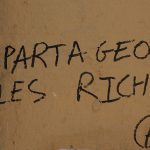 PARTAGEO
LES RICH
A